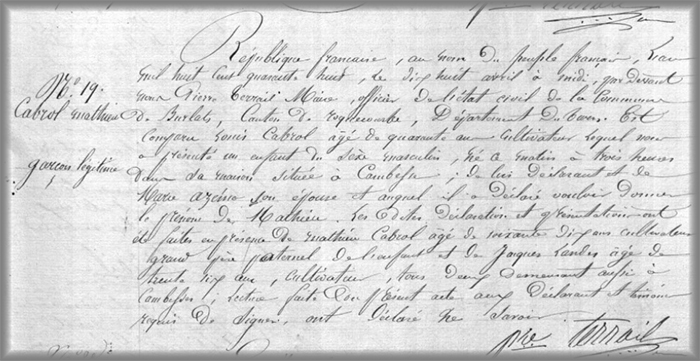 No. 19.
Cabrol Mathieu
garçon légitime
République française, au nom du peuple français, L'an
mil huit cent quarante neuf, le dix huit avril à midi, par devant
nous Pierre Terrail Maire, officier de l'état civil de la Commune
De Burlats, Canton de roquecourbe, Département du Tarn. Est
Comparu Louis Cabrol âgé de quarante ans Cultivateur lequel nous
a présenté un enfant du sexe masculin, né a matin à trois heures
Dans sa maison située à ; de lui Déclarant et de
Marie son épouse et auquel il a Déclaré vouloir Donner
le prénom de Mathieu. Les Dites Déclaration et présentation ont
été faites en présence de mathieu Cabrol âgé de soixante dix ans cultivateur
grand père paternel de l'enfant et de Jacques Landes âgé de
trente six ans, cultivateur, tous deux demeurant aussi à
; lecture faite Du présent acte aux Déclarant et témoins
requis De Signer, ont Déclaré ne Savoir.
Pre Terrail